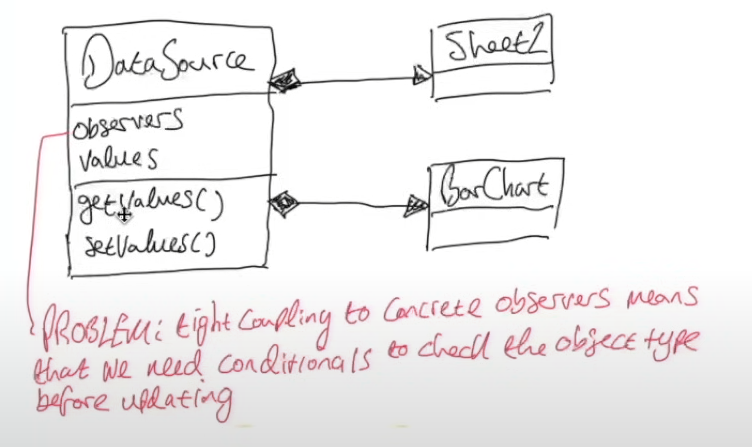 DataSource
observers
values
getValues()
setValues()
Sheet2
BarChart
PROBLEM: tight coupling to concrete observers means
that we need conditionals to check the object type
before updating